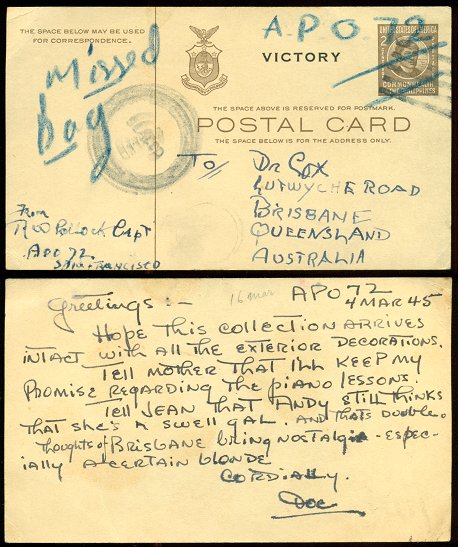 THE SPACE BELOW MAY BE USED
FOR CORRESPONDENCE.
Missed
bag
A.P.O 72
VICTORY
UNITED STATES OF AMERICA
COMMONWEALTH
PHILIPPINES
THE SPACE ABOVE IS RESERVED FOR POSTMARK.
POSTAL CARD
THE SPACE BELOW IS FOR THE ADDRESS ONLY.
TO/ DR COX
LUTWYCHE ROAD
BRISBANE
QUEENSLAND
AUSTRALIA
From
Capt
APO 72
SAN FRANCISCO
16 mar
APO 72
4 MAR 45
Greetings :-
HOPE THIS COLLECTION ARRIVES
INTACT WITH ALL THE EXTERIOR DECORATIONS.
TELL MOTHER THAT I'LL KEEP MY
PROMISE REGARDING THE PIANO LESSONS.
TELL JEAN THAT ANDY STILL THINKS
THAT SHE'S A SWELL GAL. AND THATS DOUBLE.
Thoughts of BRISBANE bring NOSTALgia - ESPEC-
IALLY A CERTAIN blonde
CORDIALLY.
Doc